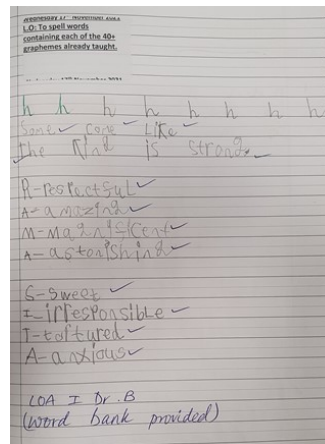 Wednesday 17 November
L.O: To spell words
containing each of the 40+
graphemes already taught.
h h h h h h h h
Some come like
the King is strong.
R-respectful
A-amazing
M-magnificent
A-astonishing
S-sweet
I-irresponsible
T-tortured
A-anxious
LOA I Dr.B
(word bank provided)